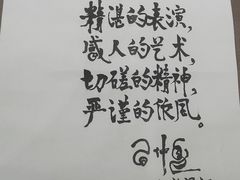 精湛的表演，
感人的艺术，
切磋的精神，
严谨的作风。